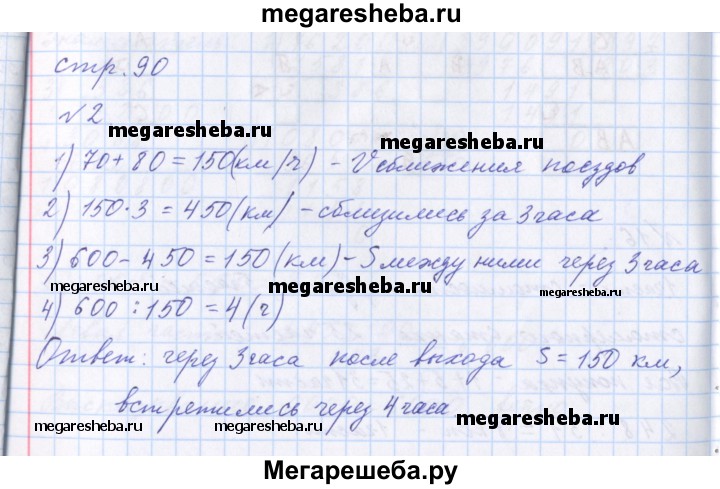 megaresheba.ru
стр. 90
№ 2
megaresheba.ru
megaresheba.ru
1) 70 + 80 = 150 (км/ч) - V сближения поездов
2) 150 · 3 = 450 (км) - сблизились за 3 часа
3) 600 - 450 = 150 (км) - S между ними через 3 часа
megaresheba.ru
megaresheba.ru
megaresheba.ru
4) 600 : 150 = 4 (ч)
Ответ: через 3 часа после выхода S = 150 км,
встретились через 4 часа
megaresheba.ru
megaresheba.ru
megaresheba.ru
Мегарешеба.ру